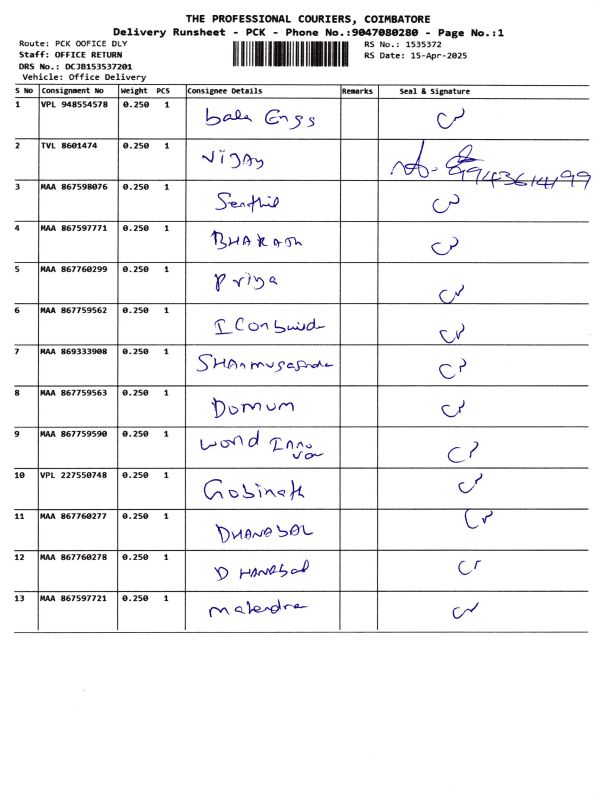 THE PROFESSIONAL COURIERS, COIMBATORE
Delivery Runsheet - PCK - Phone No.:9047080280 - Page No.:1
Route: PCK OOFICE DLY
RS No.: 1535372
Staff: OFFICE RETURN
RS Date: 15-Apr-2025
DRS No.: DCJB153537201
Vehicle: Office Delivery
S No Consignment No Weight PCS Consignee Details Remarks Seal & Signature
1 VPL 948554578 0.250 1 bala Engs
2 TVL 8601474 0.250 1 Vijay
3 MAA 867598076 0.250 1 Senthil
4 MAA 867597771 0.250 1 BHARATH
5 MAA 867760299 0.250 1 Priya
6 MAA 867759562 0.250 1
7 MAA 869333908 0.250 1
8 MAA 867759563 0.250 1 Domum
9 MAA 867759590 0.250 1 World Inno
10 VPL 227550748 0.250 1 Gobinath
11 MAA 867760277 0.250 1 DHANABAL
12 MAA 867760278 0.250 1 DHANABAL
13 MAA 867597721 0.250 1 Mahendra